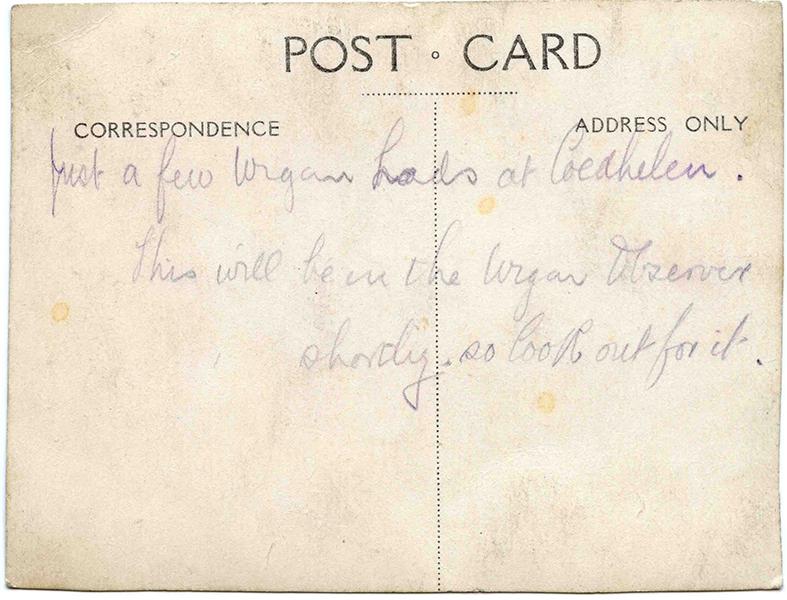 POST CARD
CORRESPONDENCE
ADDRESS ONLY
Just a few Wigan Lads at Coedhelen.
This will be in the Wigan Observer
shortly. so look out for it.